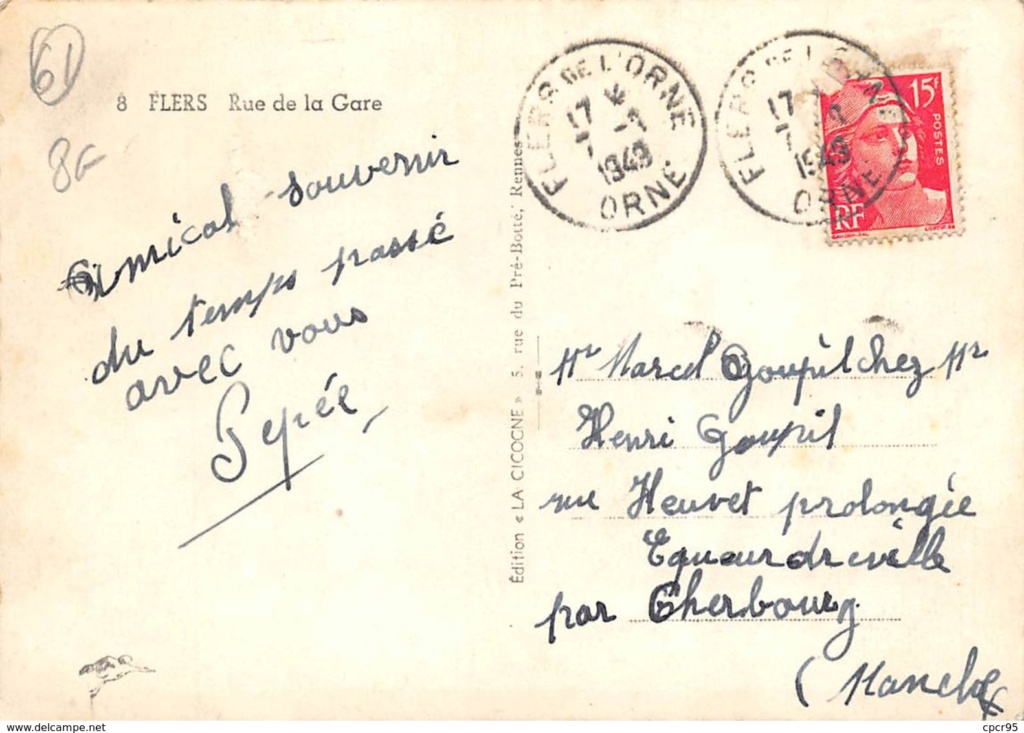 61
8 FLERS Rue de la Gare
8F
Amical souvenir
du temps passé
avec vous
Pepée
Édition « LA CICOGNE » 5, rue du Pré-Botté, Rennes
FLERS DE L'ORNE
17
1949
ORNE
FLERS DE L'ORNE
17
1949
ORNE
15F
POSTES
RF
Mr Marcel Goupil chez Mr
Henri Goupil
rue prolongée
Equeurdreville
par Cherbourg
(Manche)
www.delcampe.net
cpcr95